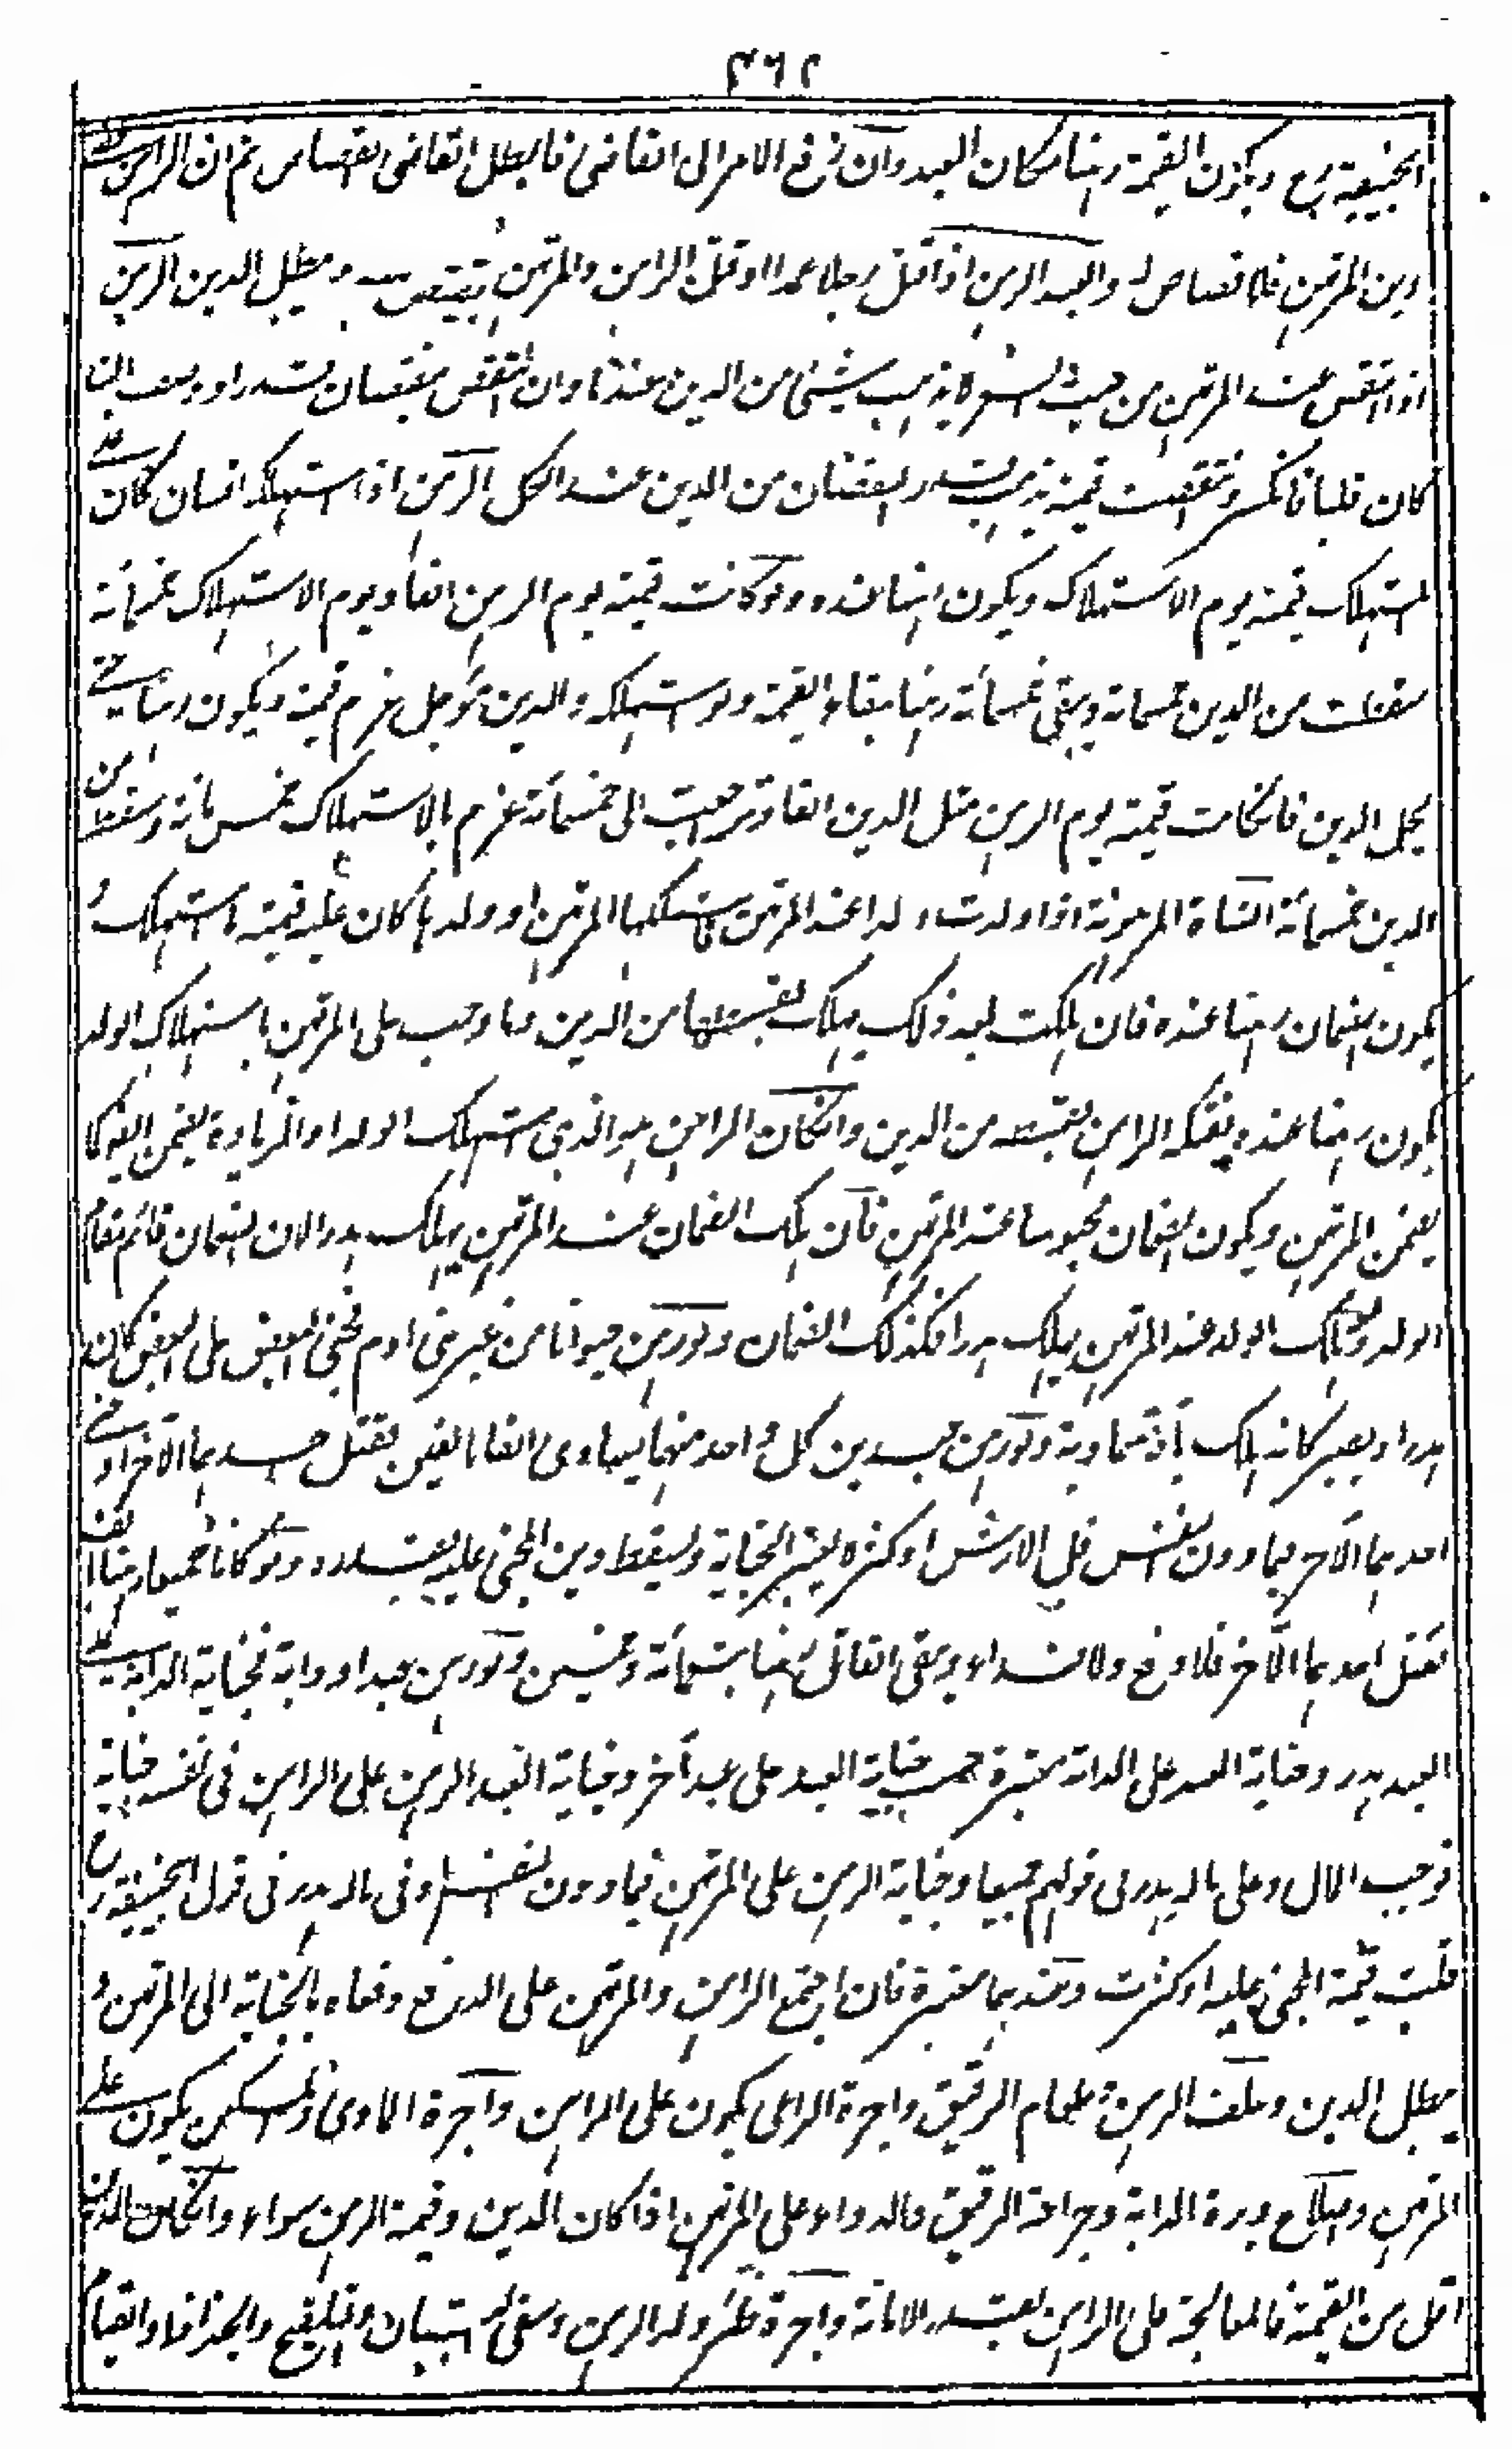 ٤٦٢
ابیحنیفة رح ویکون القیمة رهنا مکان العبد وان رفع الامر الی القاضی فابطل القاضی القصاص ثم ان الراهن قضی
دین المرتهن فلا قصاص له والعبد الرهن اذا قتل رجلا عمدا او قتل الراهن والمرتهن یقتص منه ویبطل الدین الرهن
اذا انتقص عند المرتهن من حیث السعر لا یذهب شیئ من الدین عندنا وان انتقص بنقصان قدر او وصف بان
کان قلبا فانکسر وانتقصت قیمته یذهب بقدر النقصان من الدین عند الکل الرهن اذا استهلکه انسان کان علی
المستهلک قیمته یوم الاستهلاک ویکون رهنا عنده ولو کانت قیمته یوم الرهن الفا ویوم الاستهلاک خمسمائة
سقطت من الدین خمسمائة ویبقی خمسمائة رهنا ببقاء القیمة ولو استهلکه والدین مؤجل غرم قیمته ویکون رهنا حتی
یحل الدین فانکانت قیمته یوم الرهن مثل الدین الفا وتراجعت الی خمسمائة غرم بالاستهلاک خمس مائة وسقط من
الدین خمسمائة الشاة المرهونة اذا ولدت ولدا عند المرتهن فاستهلکها المرتهن او ولدها کان علیه قیمة ما استهلک و
یکون الضمان رهنا عنده فان هلکت بعد ذلک یهلک بقسطها من الدین وما وجب علی المرتهن باستهلاک الولد
یکون رهنا عنده یفتکه الراهن بقسطه من الدین وانکان الراهن هو الذی استهلک الولد او الزیادة یضمن القیمة کما
یضمن المرتهن ویکون الضمان محبوسا عند المرتهن فان هلک الضمان عند المرتهن یهلک هدرا لان الضمان قائم مقام
الولد ولو هلک الولد عند المرتهن یهلک هدرا فکذلک الضمان ولو رهن حیوانا من غیر بنی ادم فجنی البعض علی البعض کان
هدرا ویصیر کانه هلک بآفة سماویة ولو رهن عبدین کل واحد منهما یساوی الفا بالفین فقتل احدهما الآخر او جنی
احدهما الآخر فیما دون النفس قل الارش او کثر لا یعتبر الجنایة ویسقط دین المجنی علیه بقدره ولو کانا جمیعا رهنا بالف
فقتل احدهما الآخر فلا دفع ولا فداء ویبقی القاتل رهنا بسبعمائة وخمسین ولو رهن عبدا ودابة فجنایة الدابة علی
العبد هدر وجنایة العبد علی الدابة معتبرة حسب جنایة العبد علی عبد آخر وجنایة العبد الرهن علی الراهن فی نفسه جنایة
توجب المال وعلی ماله هدر فی قولهم جمیعا وجنایة الرهن علی المرتهن فیما دون النفس او فی ماله هدر فی قول ابیحنیفة رح
قلت قیمة المجنی علیه او کثرت وعندهما معتبرة فان اجتمع الراهن والمرتهن علی الدفع دفعاه بالجنایة الی المرتهن و
یبطل الدین وعلف الرهن وطعام الرقیق واجرة الراعی یکون علی الراهن واجرة الماوی والمسکن یکون علی
المرتهن واصلاح دبرة الدابة وجراحة الرقیق والدواء علی المرتهن اذا کان الدین وقیمة الرهن سواء وانکان الدین
اقل من القیمة فالمعالجة علی الراهن بقدر الامانة واجرة ظئر ولد الرهن وسقی البستان والتلقیح والجذاذ والقیام